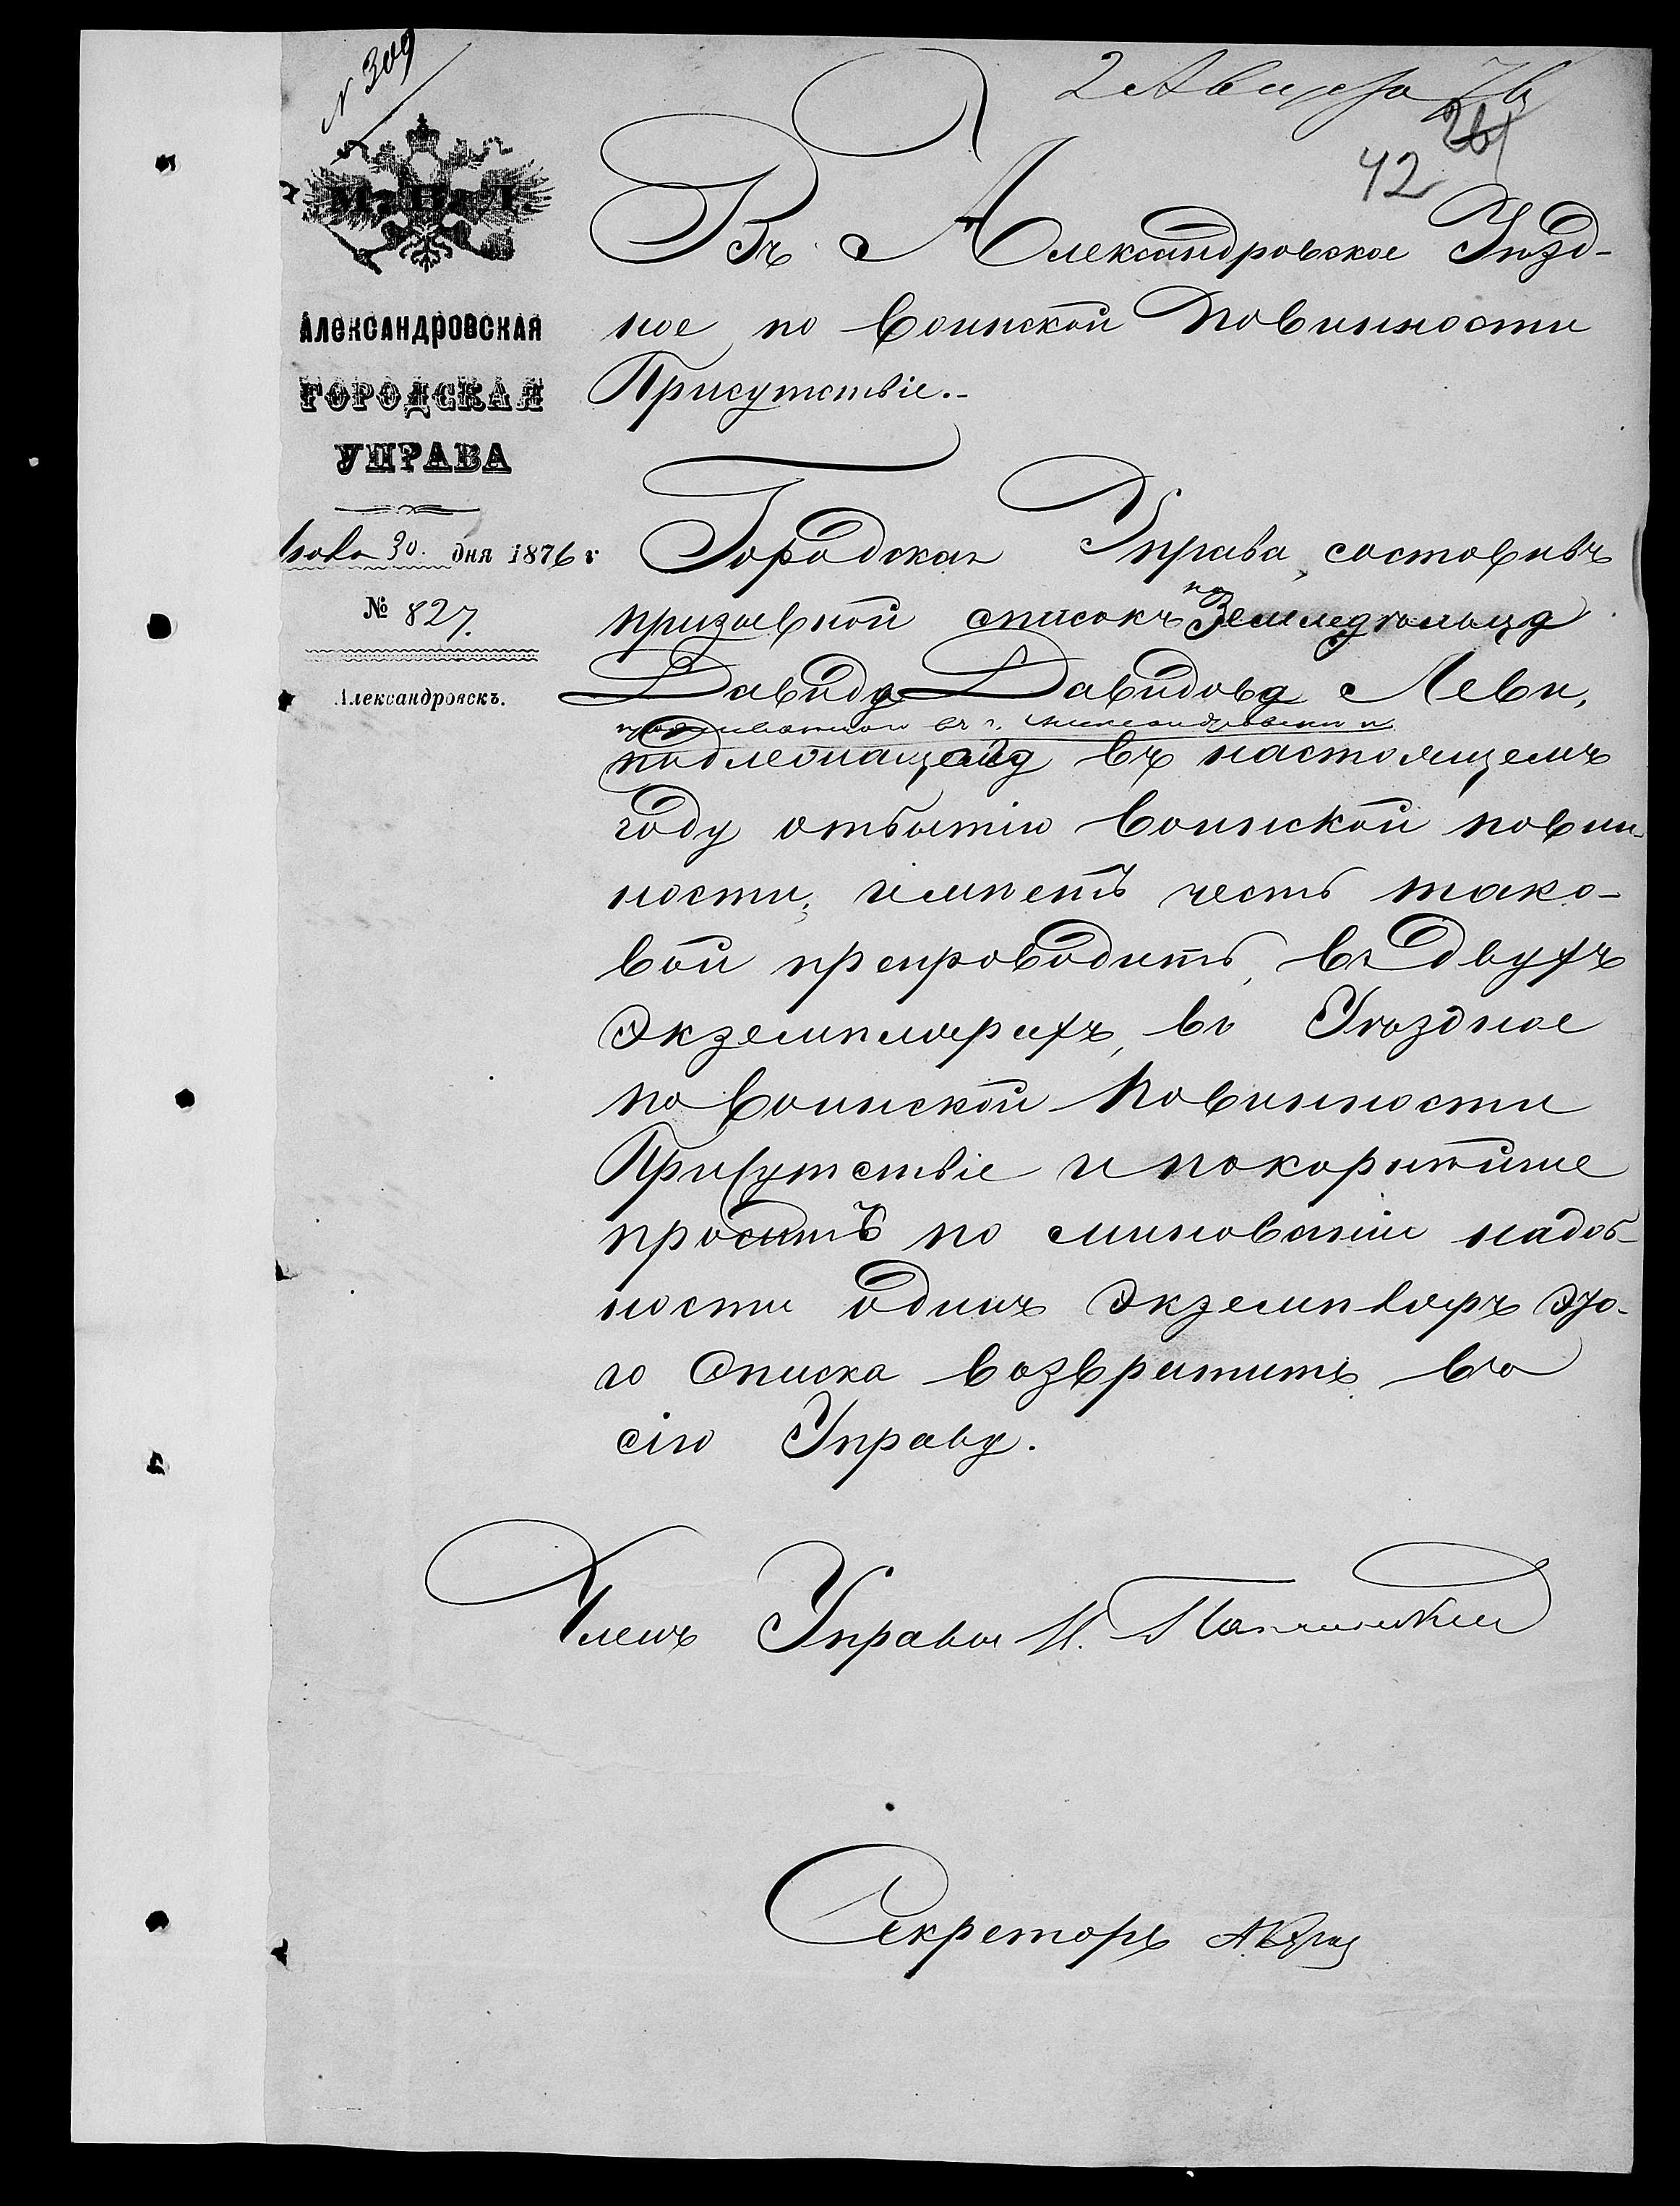 N 309
2 Августа 76
26
42
М. В. Д.
АЛЕКСАНДРОВСКАЯ
ГОРОДСКАЯ
УПРАВА
Іюля 30. дня 1876 г
№ 827.
Александровскъ.
Въ Александровское Уѣзд-
ное по воинской повинности
Присутствіе.-
Городская Управа, составивъ
призывной списокъ на Земледѣльца
Давида Давидова Леви,
проживающаго въ г. Александровскѣ и
подлежащаго въ настоящемъ
году отбытію воинской повин-
ности, имѣетъ честь тако-
вой препроводить, въ двухъ
экземплярахъ, въ Уѣздное
по воинской повинности
Присутствіе и покорнѣйше
проситъ по минованіи надоб-
ности одинъ экземпляръ это-
го списка возвратить въ
сію Управу.
Членъ Управы И.
Секретарь